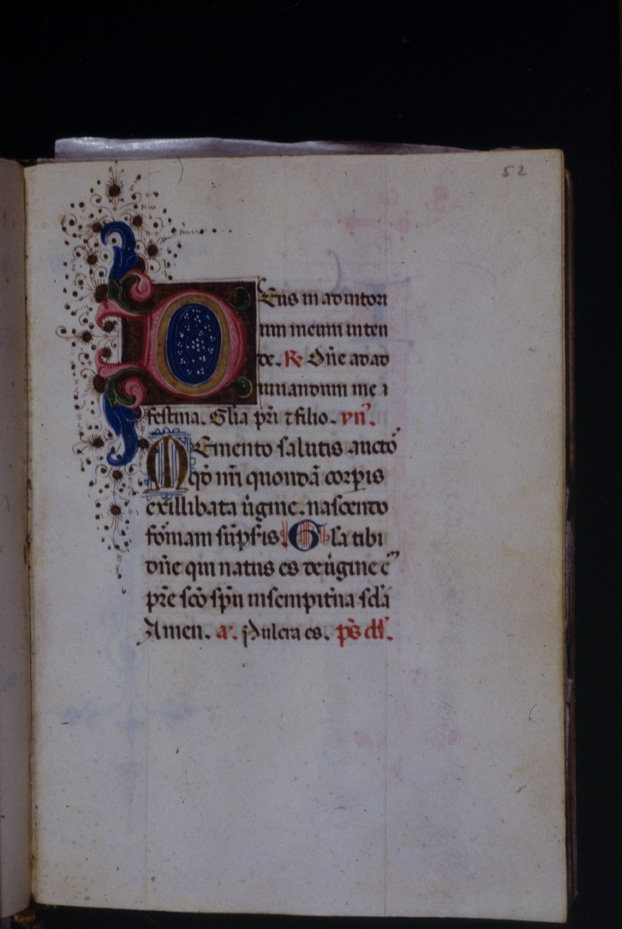 52
Deus in adiutori
um meum inten
de. R. Dñe ad ad
iuuandum me
festina. Glia pri ⁊ filio. yñ.
Memento salutis auctor
qđ nri quondã corpis
exillibata uirgine. nascendo
formam sũpsis. Glia tibi
dñe qui natus es de uirgine c̃
pre sco spũ in sempitna scla
Amen. a. Pulcra es. ps